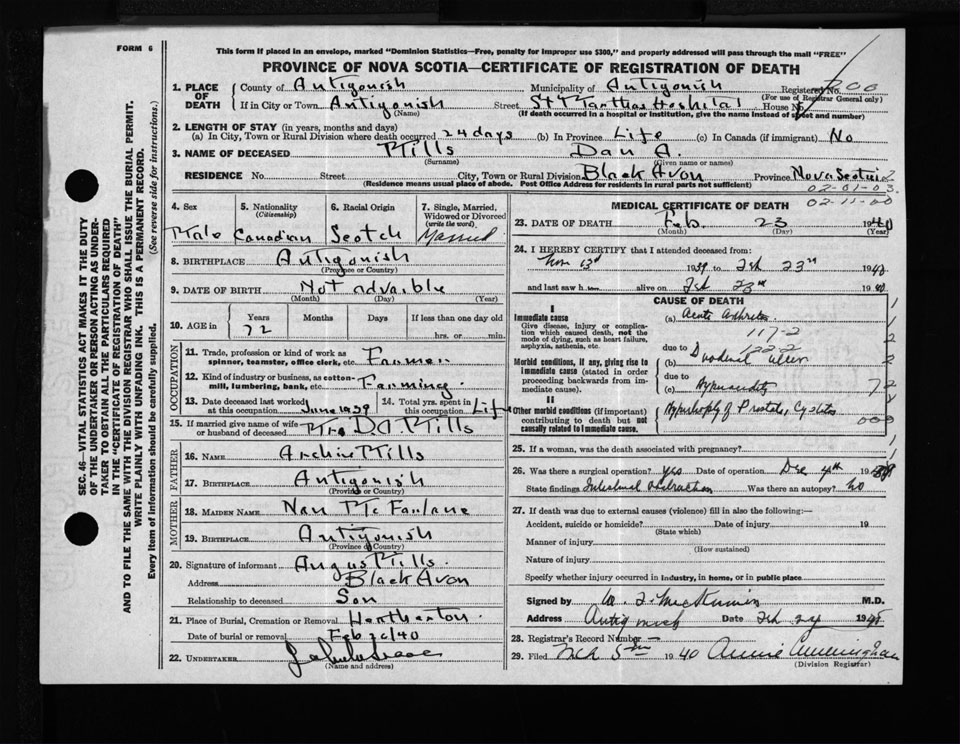 FORM 6
This form if placed in an envelope, marked "Dominion Statistics—Free, penalty for improper use $300," and properly addressed will pass through the mail "FREE"
PROVINCE OF NOVA SCOTIA—CERTIFICATE OF REGISTRATION OF DEATH
1. PLACE OF DEATH County of Antigonish Municipality of Antigonish Registered No.
(For use of Registrar General only)
If in City or Town Antigonish Street St Marthas Hospital House No.
(Name) (If death occurred in a hospital or institution, give the name instead of street and number)
2. LENGTH OF STAY (in years, months and days)
(a) In City, Town or Rural Division where death occurred 24 days (b) In Province Life (c) In Canada (if immigrant) No
3. NAME OF DECEASED Mills Dan A.
(Surname) (Given name or names)
RESIDENCE No. Street City, Town or Rural Division Black Avon Province Nova Scotia
(Residence means usual place of abode. Post Office Address for residents in rural parts not sufficient)
02-01-03
02-11-00
4. Sex 5. Nationality (Citizenship) 6. Racial Origin 7. Single, Married, Widowed or Divorced (write the word)
Male Canadian Scotch Married
8. BIRTHPLACE Antigonish
(Province or Country)
9. DATE OF BIRTH Not advaible
(Month) (Day) (Year)
10. AGE in Years Months Days If less than one day old
72 hrs. or min.
OCCUPATION
11. Trade, profession or kind of work as spinner, teamster, office clerk, etc. Farmer
12. Kind of industry or business, as cotton-mill, lumbering, bank, etc. Farming
13. Date deceased last worked at this occupation June 1939 14. Total yrs. spent in this occupation Life
15. If married give name of wife or husband of deceased Mrs D.A Mills
FATHER
16. NAME Archie Mills
17. BIRTHPLACE Antigonish
(Province or Country)
MOTHER
18. MAIDEN NAME Nan McFarlane
19. BIRTHPLACE Antigonish
(Province or Country)
20. Signature of informant Angus Mills
Address Black Avon
Relationship to deceased Son
21. Place of Burial, Cremation or Removal Heatherton
Date of burial or removal Feb 26/40
22. UNDERTAKER
(Name and address)
MEDICAL CERTIFICATE OF DEATH
23. DATE OF DEATH Feb. 23 1940
(Month) (Day) (Year)
24. I HEREBY CERTIFY that I attended deceased from:
1939 to Feb 23rd 1940
and last saw h alive on Feb 23rd 1940
CAUSE OF DEATH
I
Immediate cause
Give disease, injury or complication which caused death, not the mode of dying, such as heart failure, asphyxia, asthenia, etc.
(a) Acute
117-2
due to 122-2
Morbid conditions, if any, giving rise to immediate cause (stated in order proceeding backwards from immediate cause).
(b) Duodenal ulcer
due to
(c) Hyperacidity
II
Other morbid conditions (if important) contributing to death but not causally related to immediate cause.
Hypertrophy of Prostate, Cystitis
25. If a woman, was the death associated with pregnancy?
26. Was there a surgical operation? yes Date of operation Dec 4th 19
State findings Intestinal obstruction Was there an autopsy? No
27. If death was due to external causes (violence) fill in also the following:—
Accident, suicide or homicide? Date of injury 19
(State which)
Manner of injury
(How sustained)
Nature of injury
Specify whether injury occurred in industry, in home, or in public place
Signed by M.D.
Address Antigonish Date Feb 19
28. Registrar's Record Number —
29. Filed Mch 5th 1940 Annie Cunningham
(Division Registrar)
SEC. 46—VITAL STATISTICS ACT MAKES IT THE DUTY
OF THE UNDERTAKER OR PERSON ACTING AS UNDER-
TAKER TO OBTAIN ALL THE PARTICULARS REQUIRED
IN THE "CERTIFICATE OF REGISTRATION OF DEATH"
AND TO FILE THE SAME WITH THE DIVISION REGISTRAR WHO SHALL ISSUE THE BURIAL PERMIT.
WRITE PLAINLY WITH UNFADING INK. THIS IS A PERMANENT RECORD.
Every item of Information should be carefully supplied. (See reverse side for instructions.)